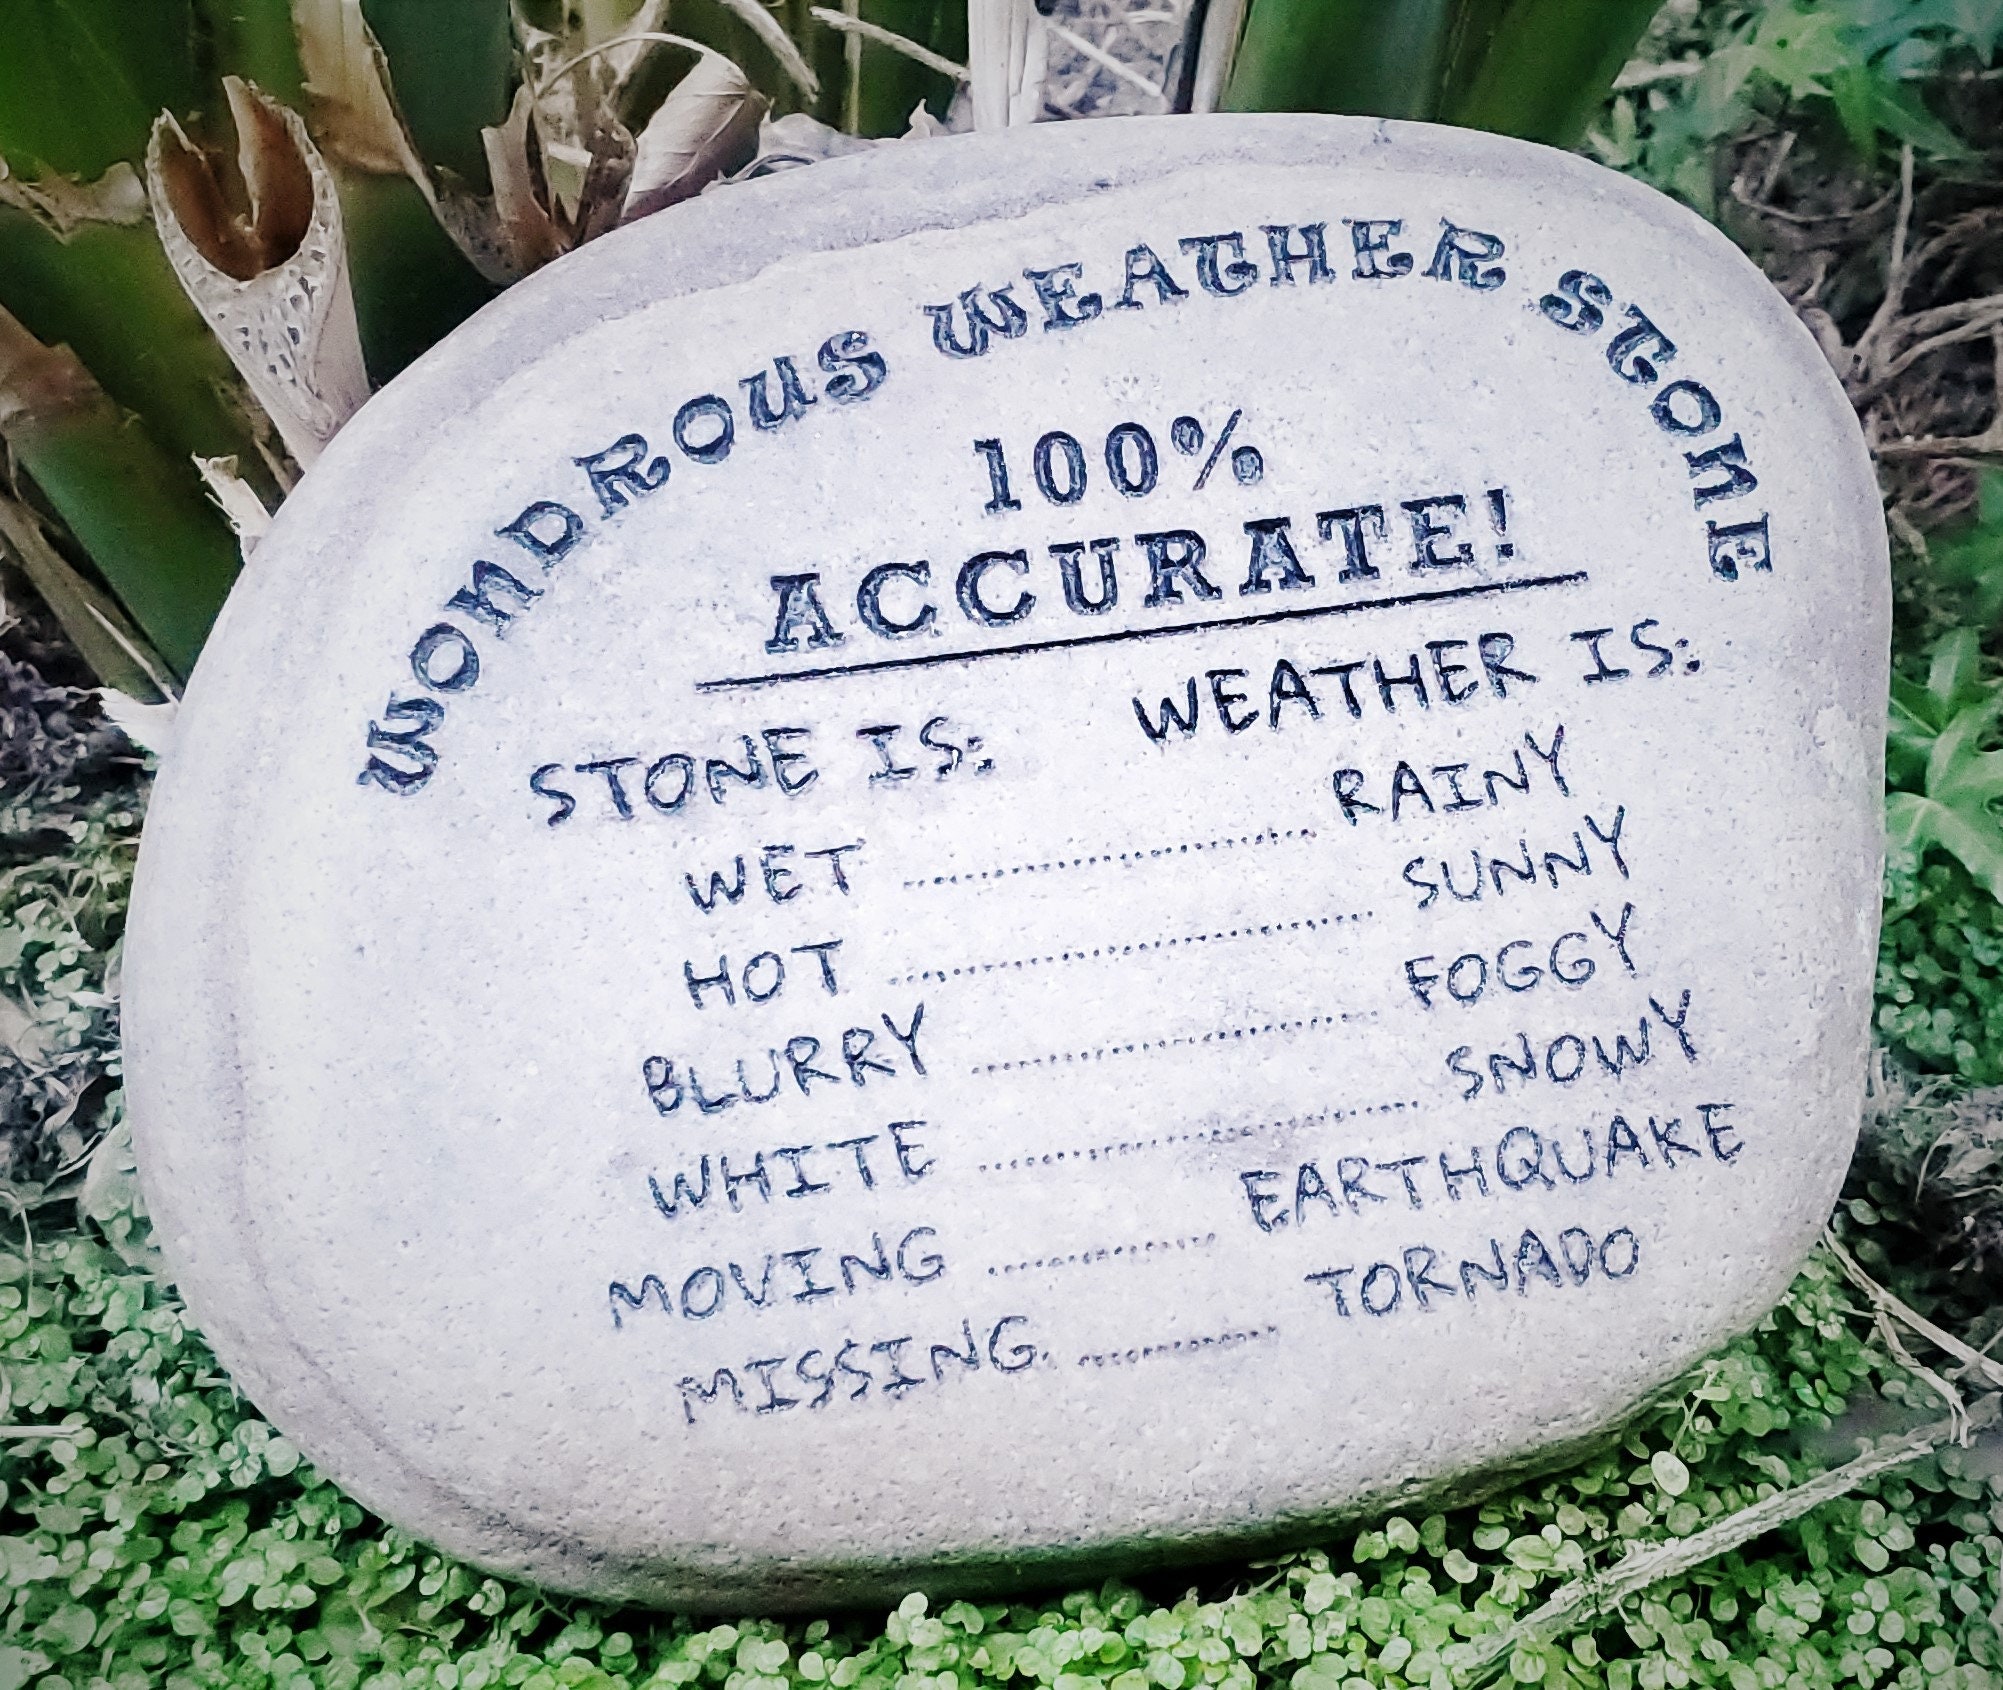 WONDROUS WEATHER STONE
100%
ACCURATE!
STONE IS: WEATHER IS:
WET .................... RAINY
HOT .................... SUNNY
BLURRY .................... FOGGY
WHITE .................... SNOWY
MOVING .................... EARTHQUAKE
MISSING .................... TORNADO